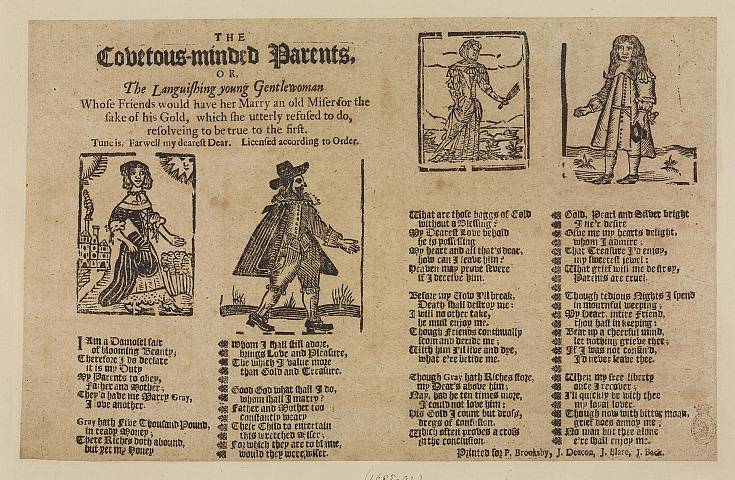 THE
Covetous-minded Parents,
OR,
The Languishing young Gentlewoman
Whose Friends would have her Marry an old Miser for the
sake of his Gold, which she utterly refused to do,
resolveing to be true to the first.
Tune is, Farwell my dearest Dear. Licensed according to Order.
I Am a Damosel fair
of blooming Beauty;
Therefore I do declare
it is my Duty
My Parents to obey,
Father and Mother;
They'd have me Marry Gray,
I love another.
Gray hath Five Thousand Pound,
in ready Money;
There Riches doth abound,
but yet my Honey
Whom I shall still adore,
brings Love and Pleasure,
The which I value more
than Gold and Treasure.
Good God what shall I do,
whom shall I marry?
Father and Mother too
constantly weary
These Child to entertain
this wretched Miser;
For which they are to blame,
would they were wiser.
What are those baggs of Gold
without a Blessing?
My Dearest Love behold
he is possessing
My heart and all that's dear,
how can I leave him?
Heaven may prove severe
if I deceive him.
Before my Vow I'll break,
Death shall destroy me;
I will no other take,
he must enjoy me.
Though Friends continually
scorn and deride me;
With him I'll live and dye,
what e're betide me.
Though Gray hath Riches store,
my Dear's above him;
Nay, had he ten times more,
I could not love him:
His Gold I count but dross,
dregs of confusion.
Which often proves a cross
in the conclusion.
Gold, Pearl and Silver bright
I ne'r desire
Give me my hearts delight,
whom I admire;
That Treasure I'd enjoy,
my sweetest jewel:
What grief will me destroy,
Parents are cruel.
Though tedious Nights I spend
in mournful weeping;
My heart, intire Friend,
thou hast in keeping:
Bear up a cheerful mind,
let nothing grieve thee;
If I was not confin'd,
I'd never leave thee.
When my free liberty
once I recover;
I'll quickly be with thee
my loyal lover.
Though now with bitter moan,
grief does annoy me;
No man but thee alone
e're shall enjoy me.
Printed for P. Brooksby, J. Deacon, J. Blare, J. Back.